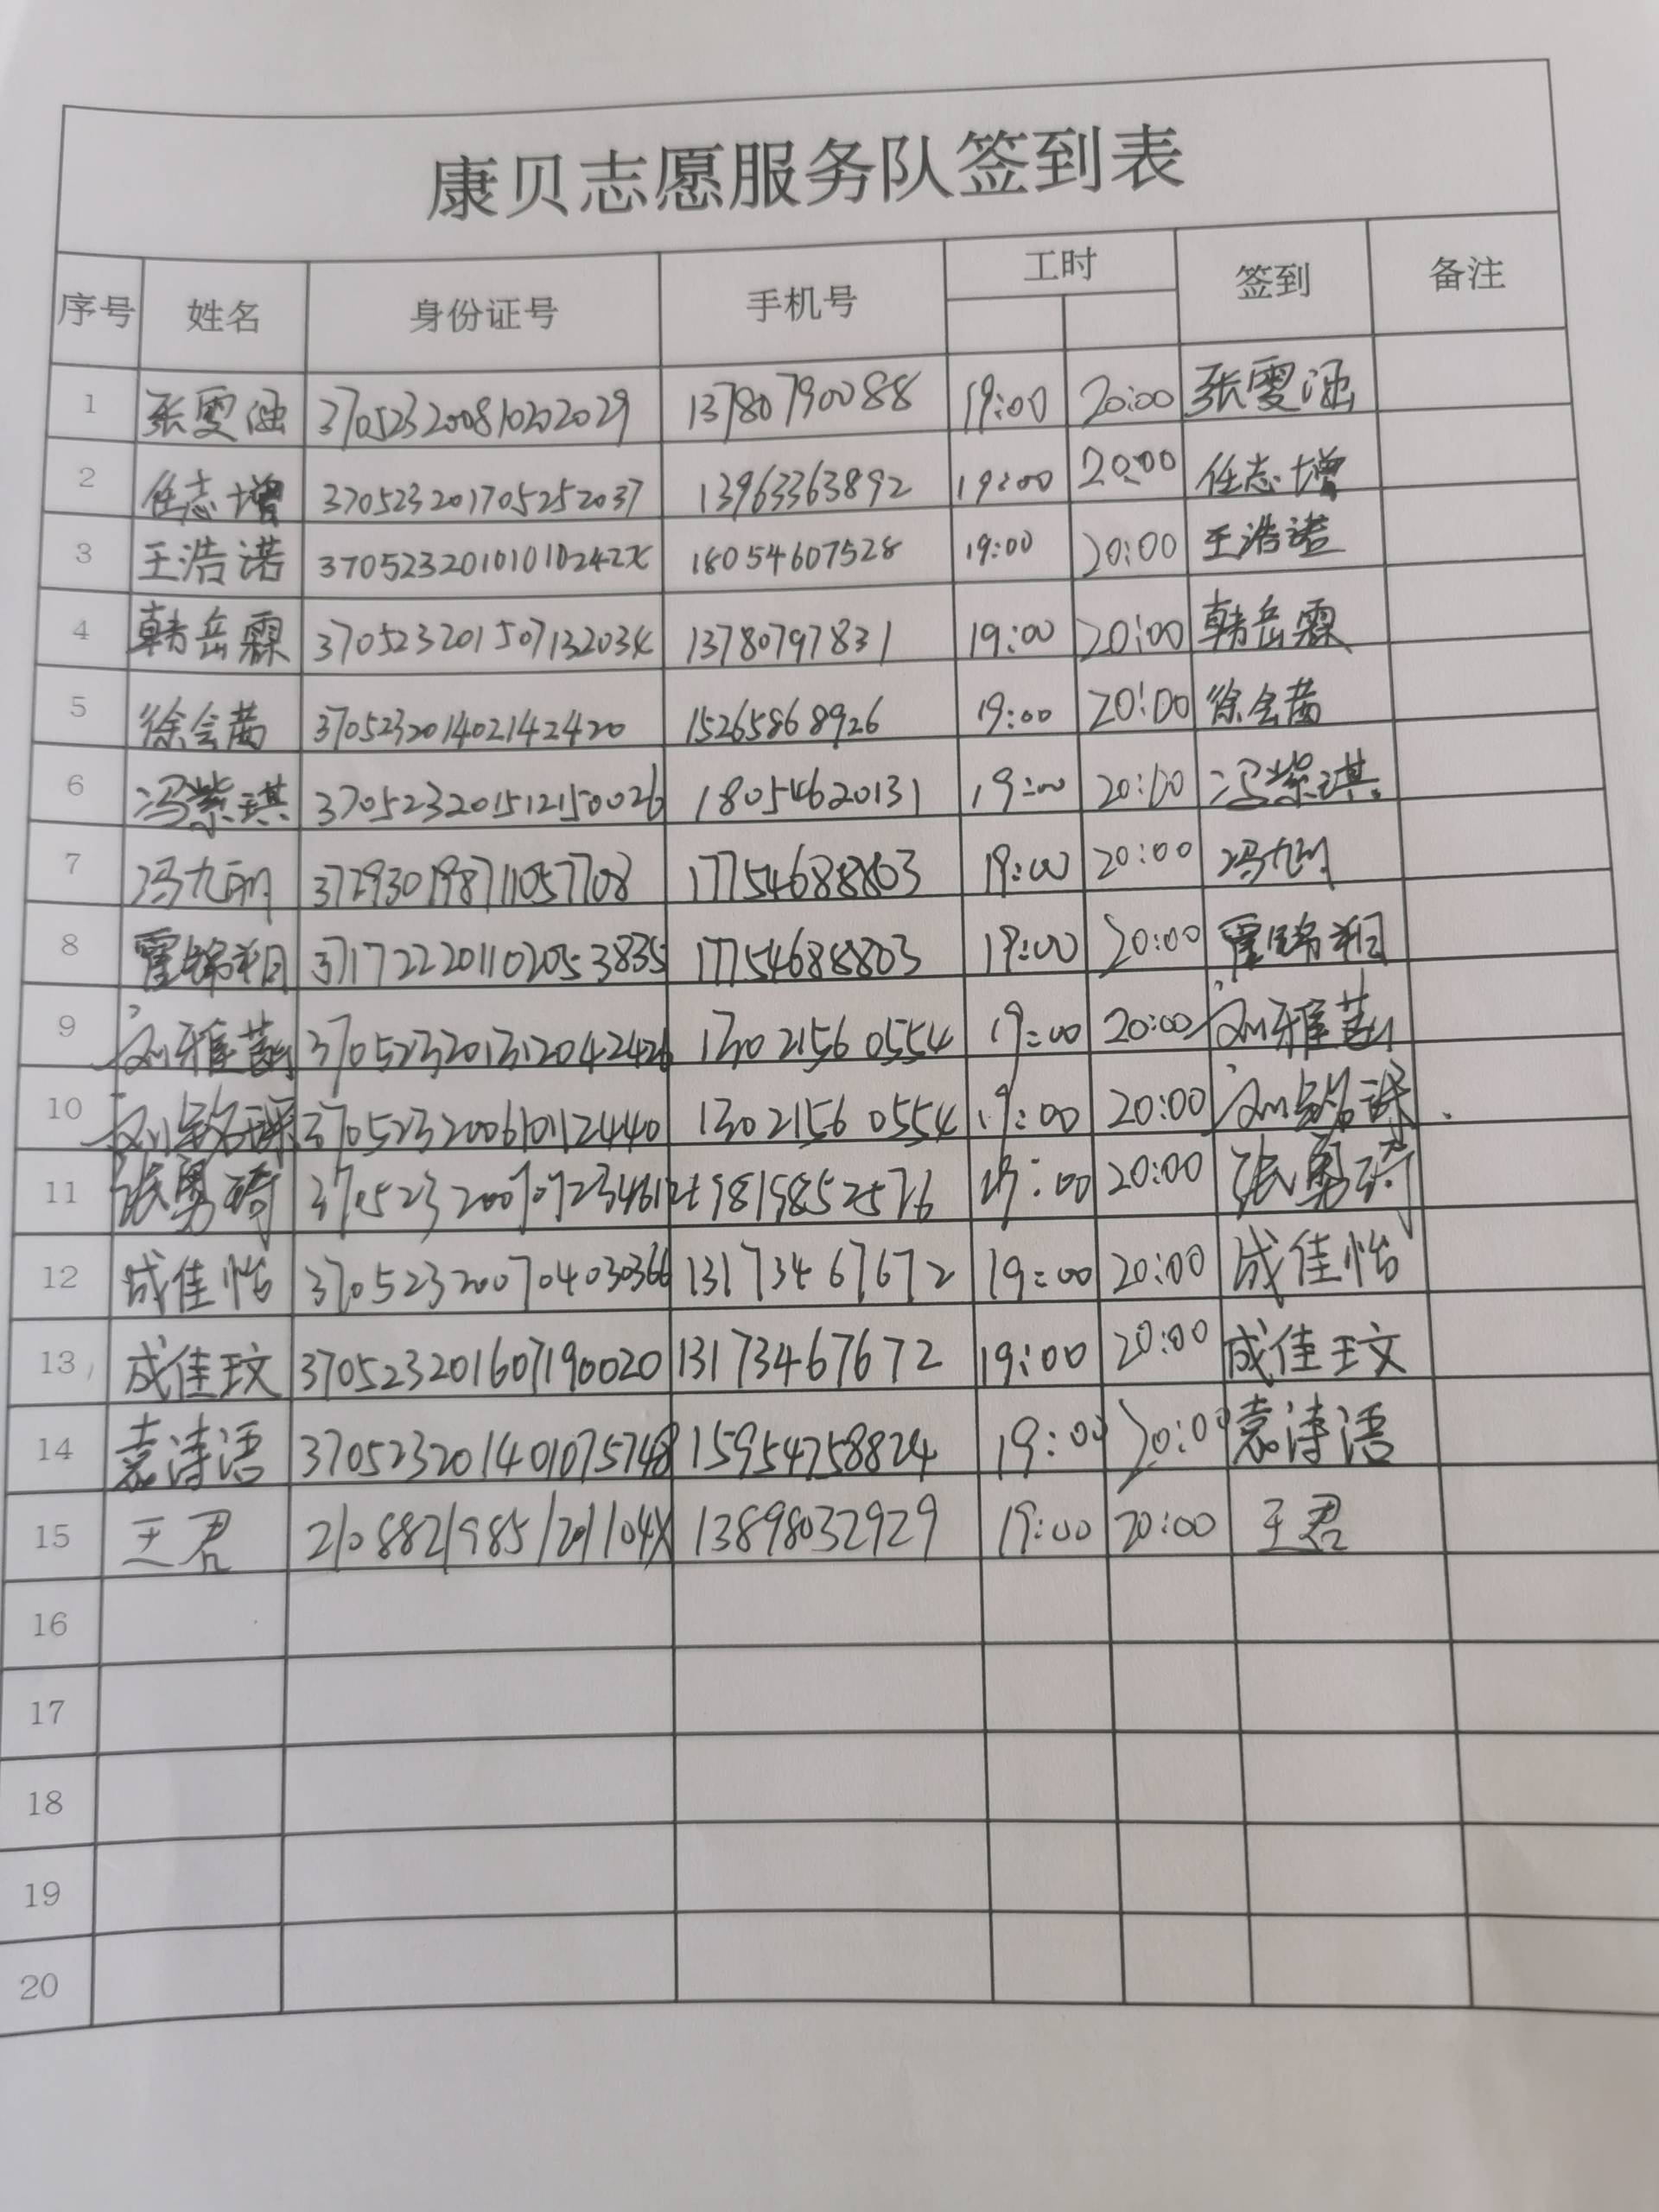 康贝志愿服务队签到表
序号 姓名 身份证号 手机号 工时 签到 备注
1 张雯涵 370523200810202029 13780790088 19:00 20:00 张雯涵
2 任志增 370523201705252037 13963363892 19:00 20:00 任志增
3 王浩诺 37052320101010242X 18054607528 19:00 20:00 王浩诺
4 韩岳霖 37052320150713203X 13780797831 19:00 20:00 韩岳霖
5 徐会茜 370523201402142420 15265868926 19:00 20:00 徐会茜
6 冯紫琪 370523201512150026 18054620131 19:00 20:00 冯紫琪
7 372930198711057708 17754688803 19:00 20:00
8 霍锦翔 371722201102053835 17754688803 19:00 20:00 霍锦翔
9 370523201312042426 13021560554 19:00 20:00
10 370523200610112440 13021560554 19:00 20:00
11 张勇琦 19819852576 19:00 20:00 张勇琦
12 成佳怡 370523200704030366 13173467672 19:00 20:00 成佳怡
13 成佳玟 370523201607190020 13173467672 19:00 20:00 成佳玟
14 袁诗语 370523201401075748 15954758824 19:00 20:00 袁诗语
15 王君 21088219851201104X 13898032929 19:00 20:00 王君
16
17
18
19
20